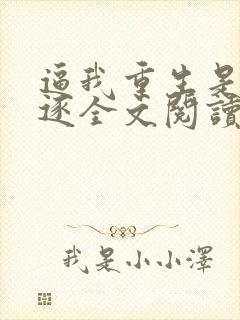 逼我重生是
逐全文閱讀
我是小小澤